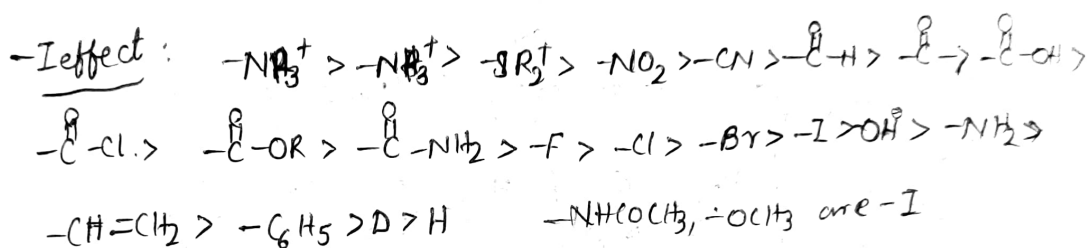 -I effect : -NR₃⁺ > -NH₃⁺ > -SR₂⁺ > -NO₂ > -CN > -C(=O)-H > -C(=O)- > -C(=O)-OH >
-C(=O)-Cl. > -C(=O)-OR > -C(=O)-NH₂ > -F > -Cl > -Br > -I > OH > -NH₂ >
-CH=CH₂ > -C₆H₅ > D > H -NHCOCH₃, -OCH₃ are -I